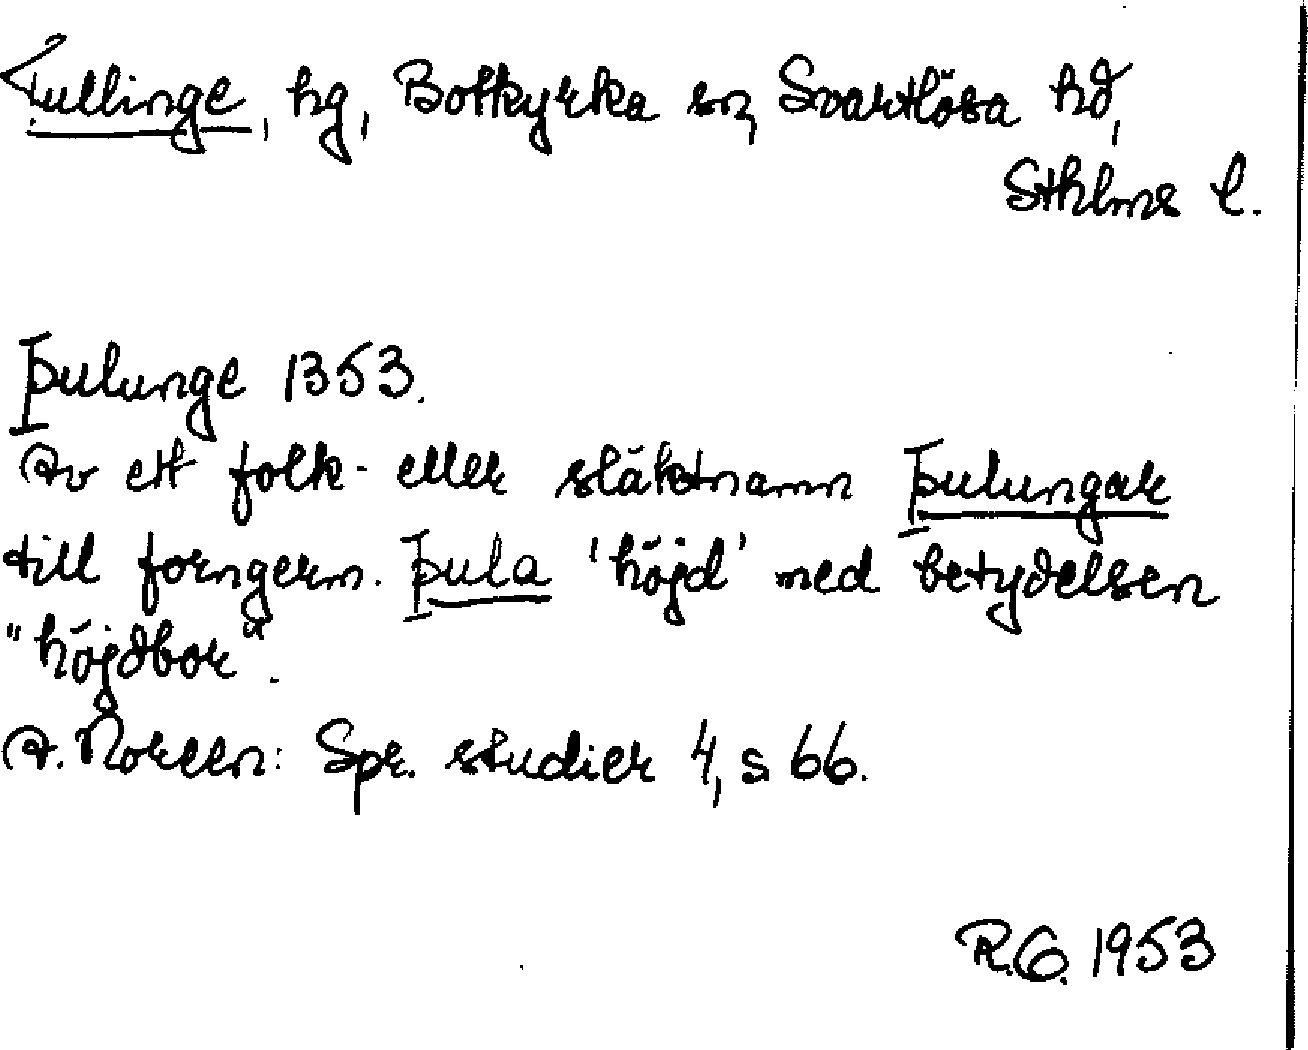 Tullinge, hg, Botkyrka sn, Svartlösa hd,
Sthlms l.
Þulunge 1353.
Av ett folk- eller släktnamn Þulungar
till forngerm. þula 'höjd' med betydelsen
"höjdbor".
A. Noreen: Spr. studier 4, s 66.
R.G. 1953